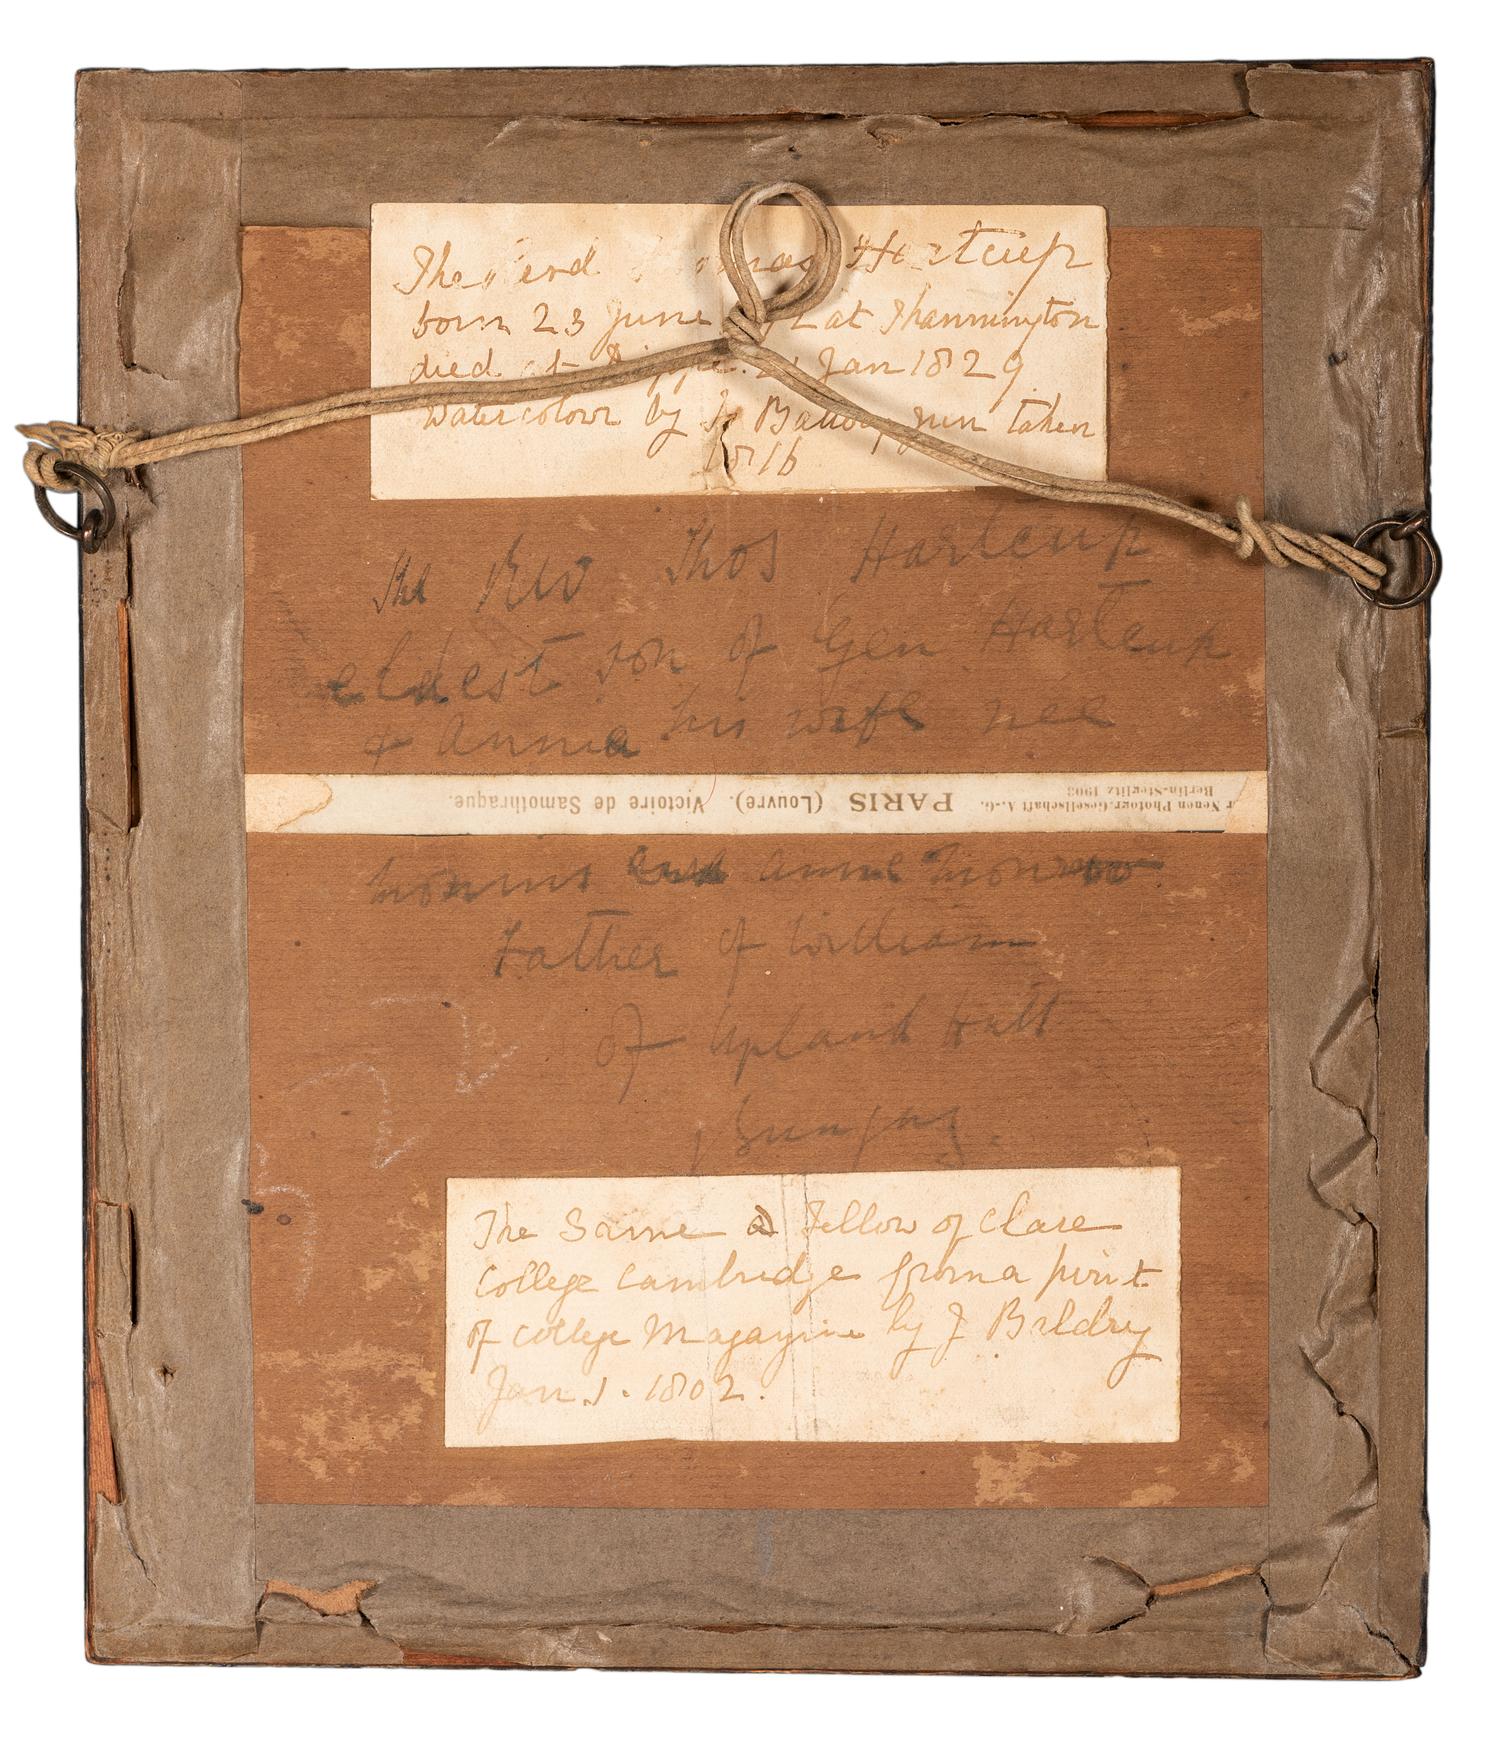 The Hartcup
born 23 June at Thannington
died at Dieppe. 2 Jan 1829
Watercolour by J. jun taken
1816
The Rev Thos Hartcup
eldest son of Gen Hartcup
& Anna his wife née
Victoire de Samothraque. (Louvre). PARIS
Neuen Photogr. Gesellschaft A.-G.
Berlin-Steglitz 1903
and Anne
Father of William
of Upland Hall
Bungay.
The Same a Fellow of Clare
College Cambridge from a print
of College Magazine by J Baldry
Jan 1. 1802.